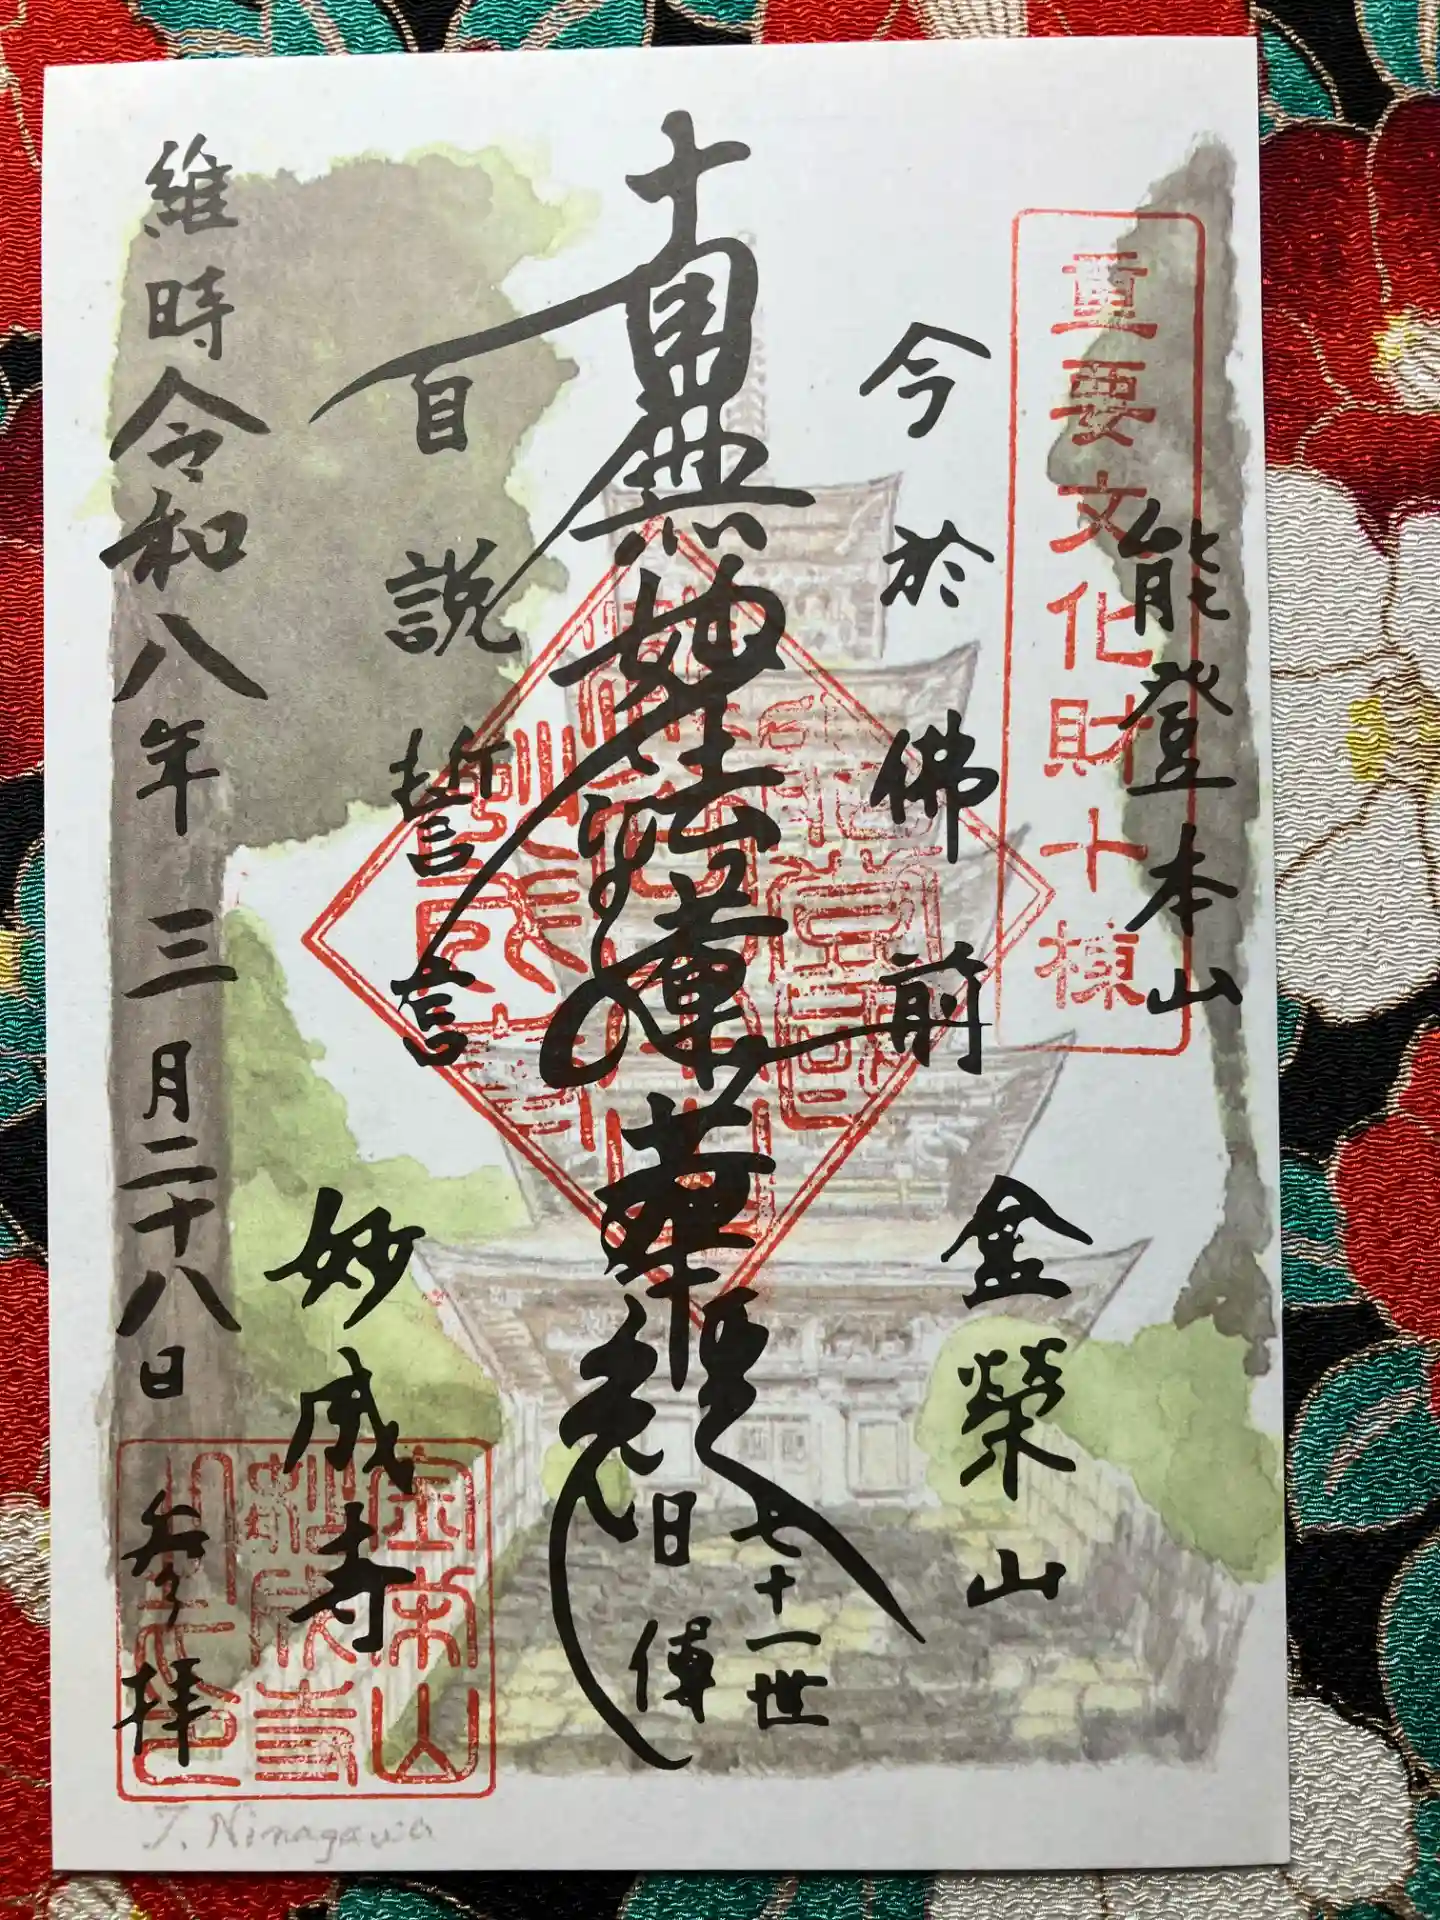 能登本山
重要文化財十棟
金榮山
今於佛前
南無妙法蓮華経
七十一世
日傳
自説誓言
妙成寺
維時令和八年三月二十八日
参拝
T. Ninagawa